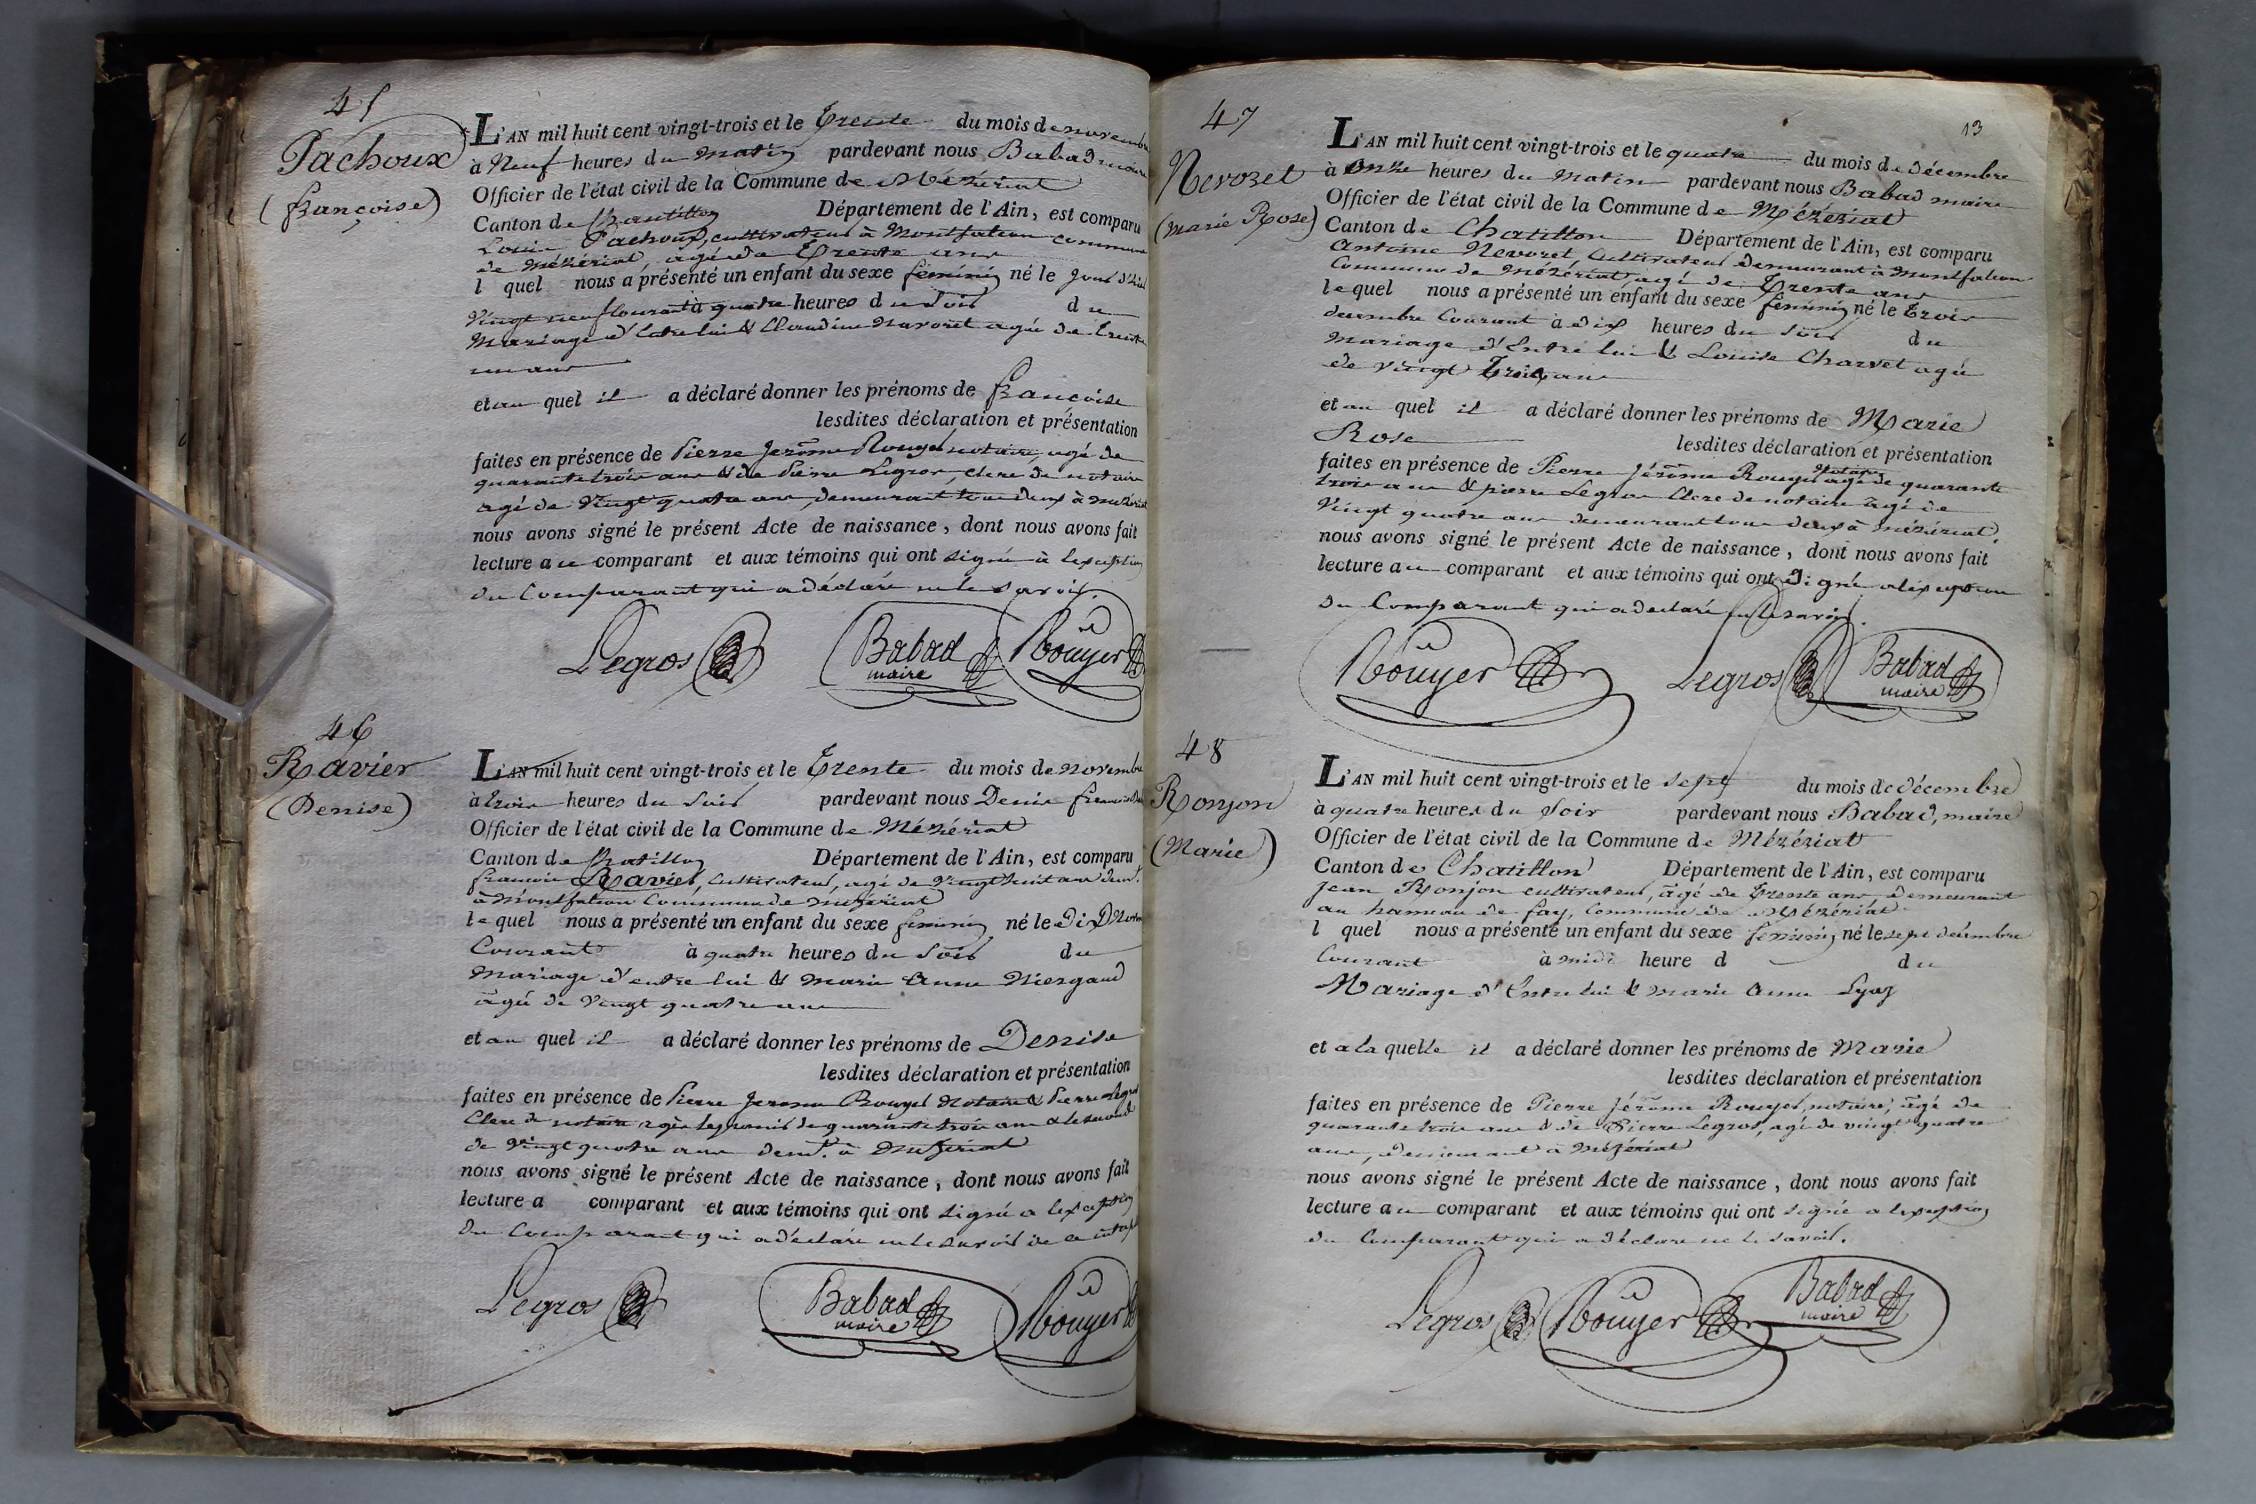 45
Pachoux
(françoise)
L'AN mil huit cent vingt-trois et le Trente du mois de novembre
à Neuf heures du matin pardevant nous Babad maire
Officier de l'état civil de la Commune de Mézériat
Canton de Chatillon Département de l'Ain, est comparu
Louis Pachoux, cultivateur à Montfalcon commune
de Mézériat, agé de Trente ans
l quel nous a présenté un enfant du sexe féminin né le jour d'hier
vingt neuf courant à quatre heures du soir du
Mariage d'Entre lui & Claudine Navoret agée de trente
un ans
et au quel il a déclaré donner les prénoms de françoise
lesdites déclaration et présentation
faites en présence de Pierre Jerôme Rouyer notaire, agé de
quarante trois ans & de Pierre Legros, clerc de notaire
agé de vingt quatre ans, demeurant tous deux à Mézériat
nous avons signé le présent Acte de naissance, dont nous avons fait
lecture au comparant et aux témoins qui ont signé à l'exception
du Comparant qui a déclaré ne le savoir.
Legros Babad maire Rouyer
46
Ravier
(Denise)
L'AN mil huit cent vingt-trois et le Trente du mois de novembre
à trois heures du soir pardevant nous Denis françois
Officier de l'état civil de la Commune de Mézériat
Canton de Chatillon Département de l'Ain, est comparu
françois Ravier, cultivateur, agé de vingt huit ans demt.
à Montfalcon Commune de Mézériat
le quel nous a présenté un enfant du sexe féminin né le Dix
Courant à quatre heures du soir du
Mariage d'entre lui & marie Anne Niergaud
agée de vingt quatre ans
et au quel il a déclaré donner les prénoms de Denise
lesdites déclaration et présentation
faites en présence de Pierre Jerome Rouyer Notaire & Pierre Legros
Clerc de notaire agés le premier de quarante trois ans & le second
de vingt quatre ans demt. à Mézériat
nous avons signé le présent Acte de naissance, dont nous avons fait
lecture a comparant et aux témoins qui ont signé a l'exception
du Comparant qui a déclaré ne le savoir de ce
Legros Babad maire Rouyer
13
47
Nevoret
(marie Rose)
L'AN mil huit cent vingt-trois et le quatre du mois de décembre
à onze heures du matin pardevant nous Babad maire
Officier de l'état civil de la Commune de Mézériat
Canton de Chatillon Département de l'Ain, est comparu
Antoine Nevoret, Cultivateur demeurant à Montfalcon
Commune de Mézériat, agé de Trente ans
le quel nous a présenté un enfant du sexe féminin né le trois
décembre Courant à dix heures du soir du
mariage d'Entre lui & Louise Charvet agée
de vingt Trois ans
et au quel il a déclaré donner les prénoms de Marie
Rose lesdites déclaration et présentation
faites en présence de Pierre Jérôme Rouyer notaire agé de quarante
trois ans & pierre Legros Clerc de notaire agé de
vingt quatre ans demeurant tous deux à mézériat,
nous avons signé le présent Acte de naissance, dont nous avons fait
lecture au comparant et aux témoins qui ont signé
du Comparant qui a déclaré ne le savoir.
Rouyer Legros Babad maire
48
Ronjon
(Marie)
L'AN mil huit cent vingt-trois et le sept du mois de décembre
à quatre heures du soir pardevant nous Babad, maire
Officier de l'état civil de la Commune de Mézériat
Canton de Chatillon Département de l'Ain, est comparu
Jean Ronjon cultivateur, agé de trente ans demeurant
au hameau de fay, Commune de Mézériat
l quel nous a présenté un enfant du sexe féminin né le sept décembre
Courant à midi heure d du
Mariage d'Entre lui & Marie Anne Lyaz
et a la quelle il a déclaré donner les prénoms de Marie
lesdites déclaration et présentation
faites en présence de Pierre Jérôme Rouyer, notaire, agé de
quarante trois ans & de Pierre Legros, agé de vingt quatre
ans, demeurant à Mézériat
nous avons signé le présent Acte de naissance, dont nous avons fait
lecture au comparant et aux témoins qui ont signé a l'exception
du Comparant qui a déclaré ne le savoir.
Legros Rouyer Babad maire